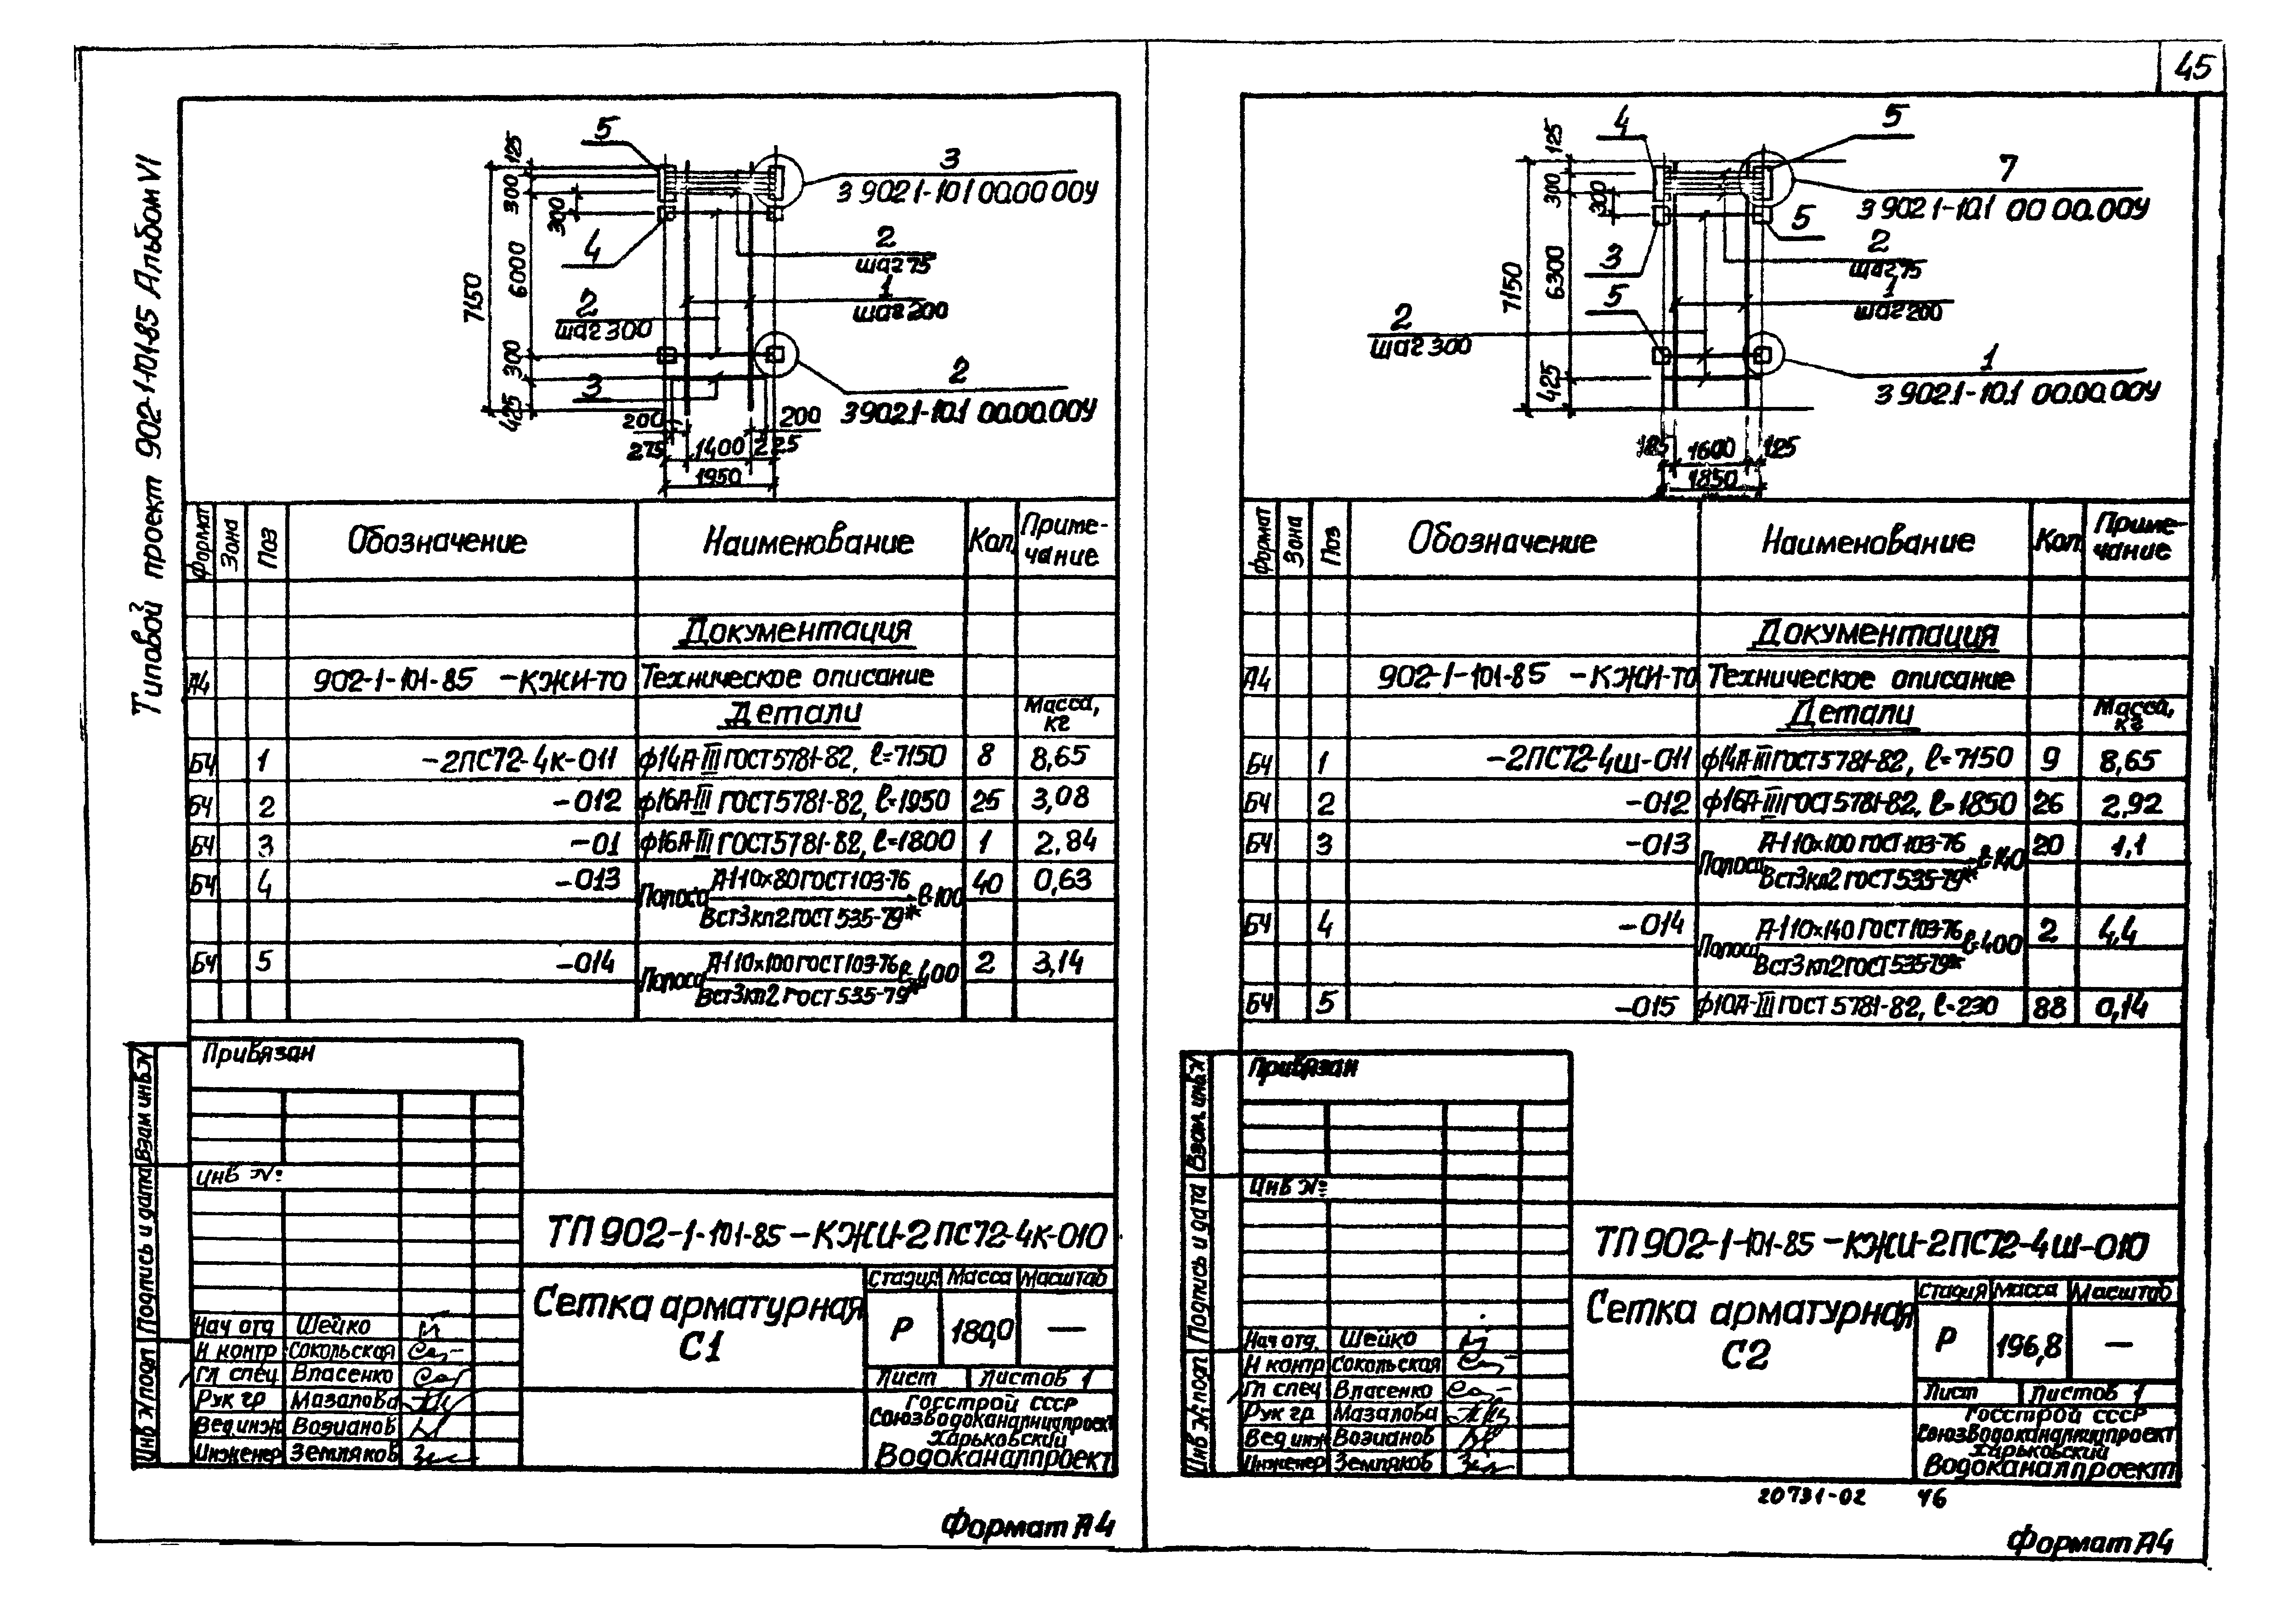 45
Типовой проект 902-1-101-85 Альбом VI
5
3
3 902.1-10.1 00.00.00У
4
2
шаг 75
1
шаг 200
2
шаг 300
3
2
3 902.1-10.1 00.00.00У
125
300
300
6000
7150
300
425
200
200
275
1400
225
1950
Формат Зона Поз Обозначение Наименование Кол. Приме-
чание
Документация
А4 902-1-101-85 -КЖИ-ТО Техническое описание
Детали Масса,
кг
БЧ 1 -2ПС72-4к-011 ф14А-III ГОСТ 5781-82, ℓ=7150 8 8,65
БЧ 2 -012 ф16А-III ГОСТ 5781-82, ℓ=1950 25 3,08
БЧ 3 -01 ф16А-III ГОСТ 5781-82, ℓ=1800 1 2.84
БЧ 4 -013 Полоса А-I 10х80 ГОСТ 103-76 ℓ=100 40 0,63
Вст3кп2 ГОСТ 535-79*
БЧ 5 -014 Полоса А-I 10х100 ГОСТ 103-76 ℓ=400 2 3,14
Вст3кп2 ГОСТ 535-79*
Привязан
Инв №:
Взам инв №
Подпись и дата
Инв № подл
ТП 902-1-101-85-КЖИ-2ПС72-4к-010
Сетка арматурная
С1
Стадия Масса Масштаб
Р 180,0 —
Лист Листов 1
Нач отд Шейко
Н контр Сокольская
Гл спец Власенко
Рук гр Мазалова
Вед инж Возианов
Инженер Земляков
Госстрой СССР
Союзводоканалниипроект
Харьковский
Водоканалпроект
Формат А4
4
5
7
3 902.1-10.1 00.00.00У
5
3
2
шаг 75
5
1
шаг 200
2
шаг 300
1
3 902.1-10.1 00.00.00У
125
300
300
6300
7150
425
125
1600
125
1850
Формат Зона Поз Обозначение Наименование Кол. Приме-
чание
Документация
А4 902-1-101-85 -КЖИ-ТО Техническое описание
Детали Масса,
кг
БЧ 1 -2ПС72-4ш-011 ф14А-III ГОСТ 5781-82, ℓ=7150 9 8,65
БЧ 2 -012 ф16А-III ГОСТ 5781-82, ℓ=1850 26 2,92
БЧ 3 -013 Полоса А-I 10х100 ГОСТ 103-76 ℓ=140 20 1,1
Вст3кп2 ГОСТ 535-79*
БЧ 4 -014 Полоса А-I 10х140 ГОСТ 103-76 ℓ=400 2 4,4
Вст3кп2 ГОСТ 535-79*
БЧ 5 -015 ф10А-III ГОСТ 5781-82, ℓ=230 88 0,14
Привязан
Инв №:
Взам. инв №
Подпись и дата
Инв № подл
ТП 902-1-101-85-КЖИ-2ПС72-4ш-010
Сетка арматурная
С2
Стадия Масса Масштаб
Р 196,8 —
Лист Листов 1
Нач отд. Шейко
Н контр Сокольская
Гл спец Власенко
Рук гр. Мазалова
Вед инж Возианов
Инженер Земляков
Госстрой СССР
Союзводоканалниипроект
Харьковский
Водоканалпроект
20731-02 46
Формат А4